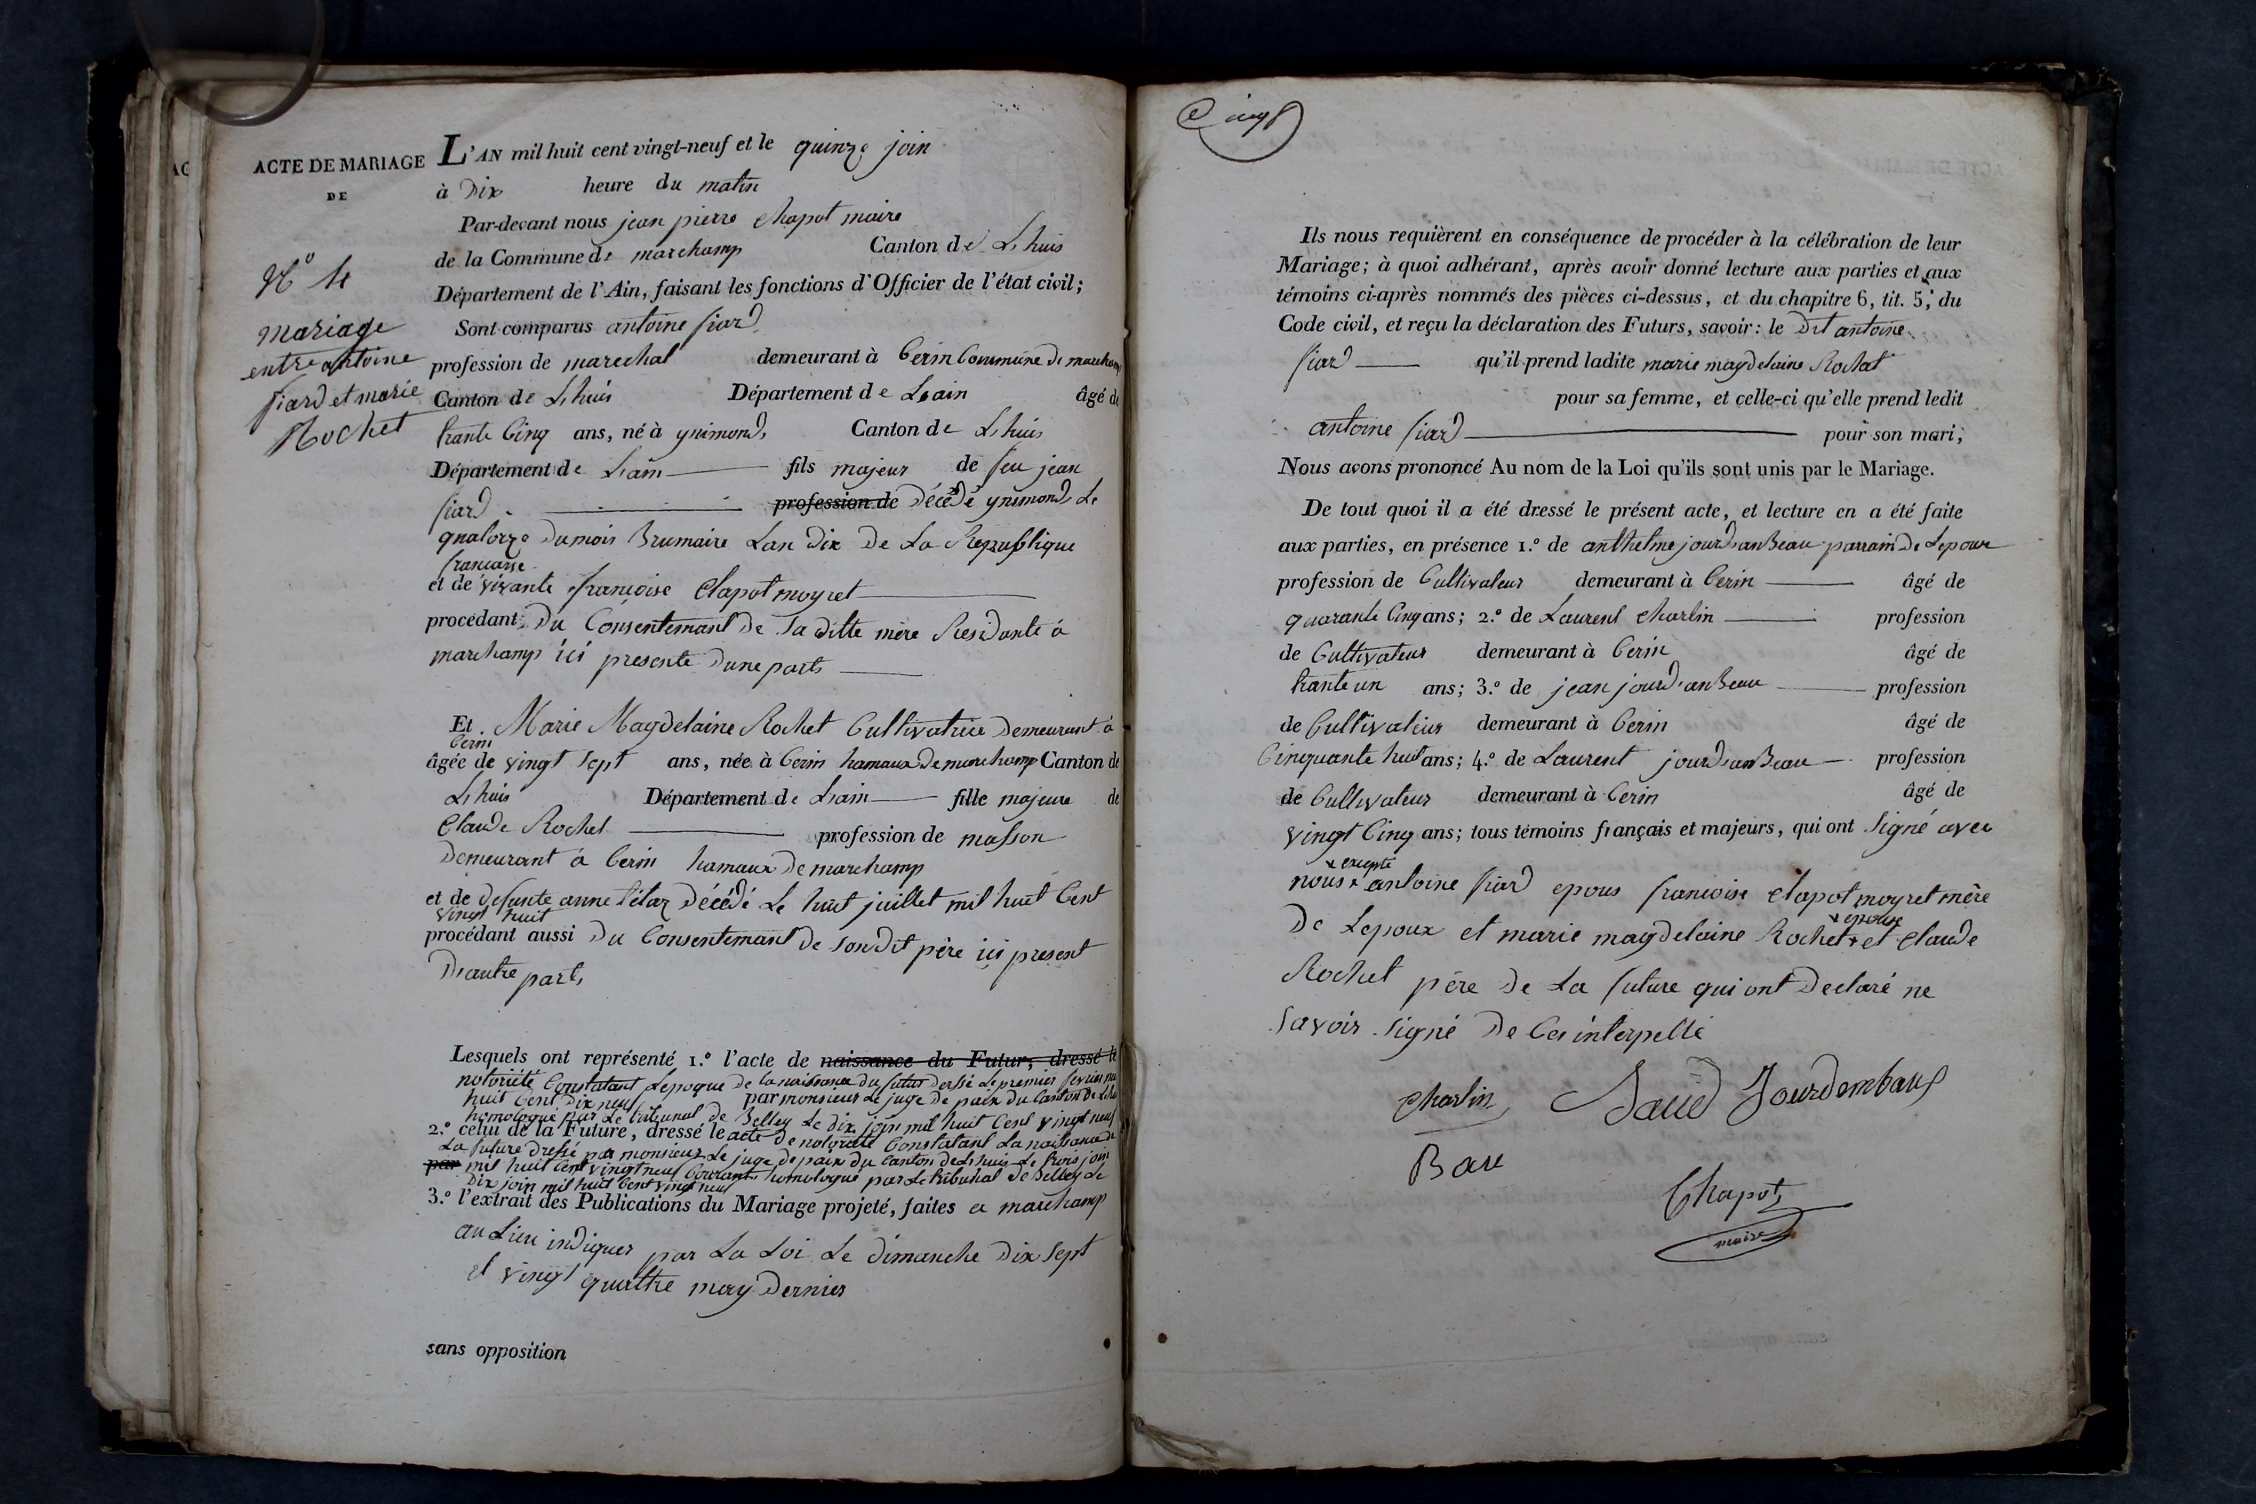 ACTE DE MARIAGE
DE
mariage
entre antoine
siard et marie
Rochet
L'AN mil huit cent vingt-neuf et le quinze join
à Dix heure du matin
Par-devant nous jean pierre Chapot maire
de la Commune de marchamp Canton de Lhuis
Département de l'Ain, faisant les fonctions d'Officier de l'état civil;
Sont comparus antoine siard
profession de marechal demeurant à Cerin Commune de marchamp
Canton de Lhuis Département de Lain âgé de
trante Cinq ans, né à ynimond Canton de Lhuis
Département de Lain fils majeur de feu jean
siard profession de décédé ynimond Le
quatorze du mois Brumaire Lan Dix De La Republique
francaise
et de vivante francoise Clapot moyret
procédant Du Consentemant De sa ditte mère Residante á
marchamp ici presente Dune part
Et Marie Magdelaine Rochet Cultivatrice Demeurant á
Cerin
âgée de vingt sept ans, née à Cerin hamaux De marchamp Canton de
Lhuis Département de Lain fille majeure de
Claude Rochet profession de masson
Demeurant á Cerin hamaux De marchamp
et de defunte anne décédé Le huit juillet mil huit Cent
vingt huit
procédant aussi Du Consentemant De son Dit père ici present
D'autre part
Lesquels ont représenté 1.º l'acte de naissance du Futur, dressé le
notoriété Constatant Lepoque De la naissance Du futur Dressé Le premier fevrier mil
huit Cent Dix neuf par monsieur Le juge De paix Du Canton De Lhuis
homologué par Le tribunal De Belley Le Dix join mil huit Cent vingt neuf
2.º celui de la Future, dressé le acte De notoriété Constatant La naissance De
La future Dressé par monsieur Le juge De paix Du Canton De Lhuis Le trois join
par mil huit Cent vingt neuf Courant homologué par Le tribunal De Belley Le
Dix join mil huit Cent vingt neuf
3.º l'extrait des Publications du Mariage projeté, faites a marchamp
au Lieu indiquer par La Loi Le dimanche Dix sept
et vingt quattre may Dernier
sans opposition
Ils nous requièrent en conséquence de procéder à la célébration de leur
Mariage; à quoi adhérant, après avoir donné lecture aux parties et aux
témoins ci-après nommés des pièces ci-dessus, et du chapitre 6, tit. 5, du
Code civil, et reçu la déclaration des Futurs, savoir: le Dit antoine
siard qu'il prend ladite marie magdelaine Rochet
pour sa femme, et celle-ci qu'elle prend ledit
antoine siard pour son mari;
Nous avons prononcé Au nom de la Loi qu'ils sont unis par le Mariage.
De tout quoi il a été dressé le présent acte, et lecture en a été faite
aux parties, en présence 1.º de anthelme jourD'anBeau parrain De Lepoux
profession de Cultivateur demeurant à Cerin âgé de
quarante Cinq ans; 2.º de Laurent Charlin profession
de Cultivateur demeurant à Cerin âgé de
trante un ans; 3.º de jean jourD'anBeau profession
de Cultivateur demeurant à Cerin âgé de
Cinquante huit ans; 4.º de Laurent jourD'anBeau profession
de Cultivateur demeurant à Cerin âgé de
vingt Cinq ans; tous témoins français et majeurs, qui ont signé avec
excepté
nous antoine siard epous francoise Clapot moyret mère
epouse
De Lepoux et marie magdelaine Rochet et Claude
Rochet père De La future qui ont Declaré ne
savoir signé De Ces interpellé
Charlin Jourdembaus
Chapot
maire